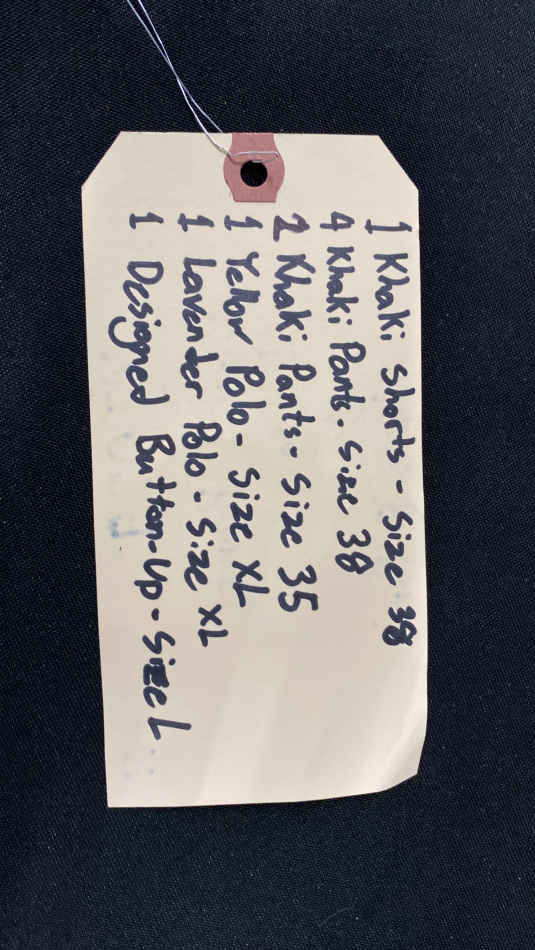 1 Khaki Shorts - Size 38
4 Khaki Pants - Size 38
Khaki Pants - Size 35
1 Yellow Polo - Size XL
1 Lavender Polo - Size XL
1 Designed Button-Up - Size L